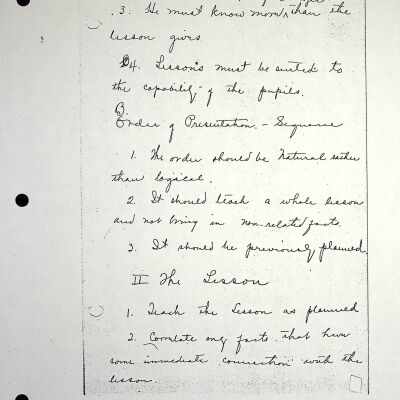 3. He must know more than the
lesson gives
4. Lessons must be suited to
the capability of the pupils.
B.
Order of Presentation - Sequence
1. The order should be Natural rather
than logical.
2. It should teach a whole lesson
and not bring in non-related facts.
3. It should be previously planned.
II The Lesson
1. Teach the Lesson as planned
2. Correlate only facts that have
some immediate connection with the
lesson.